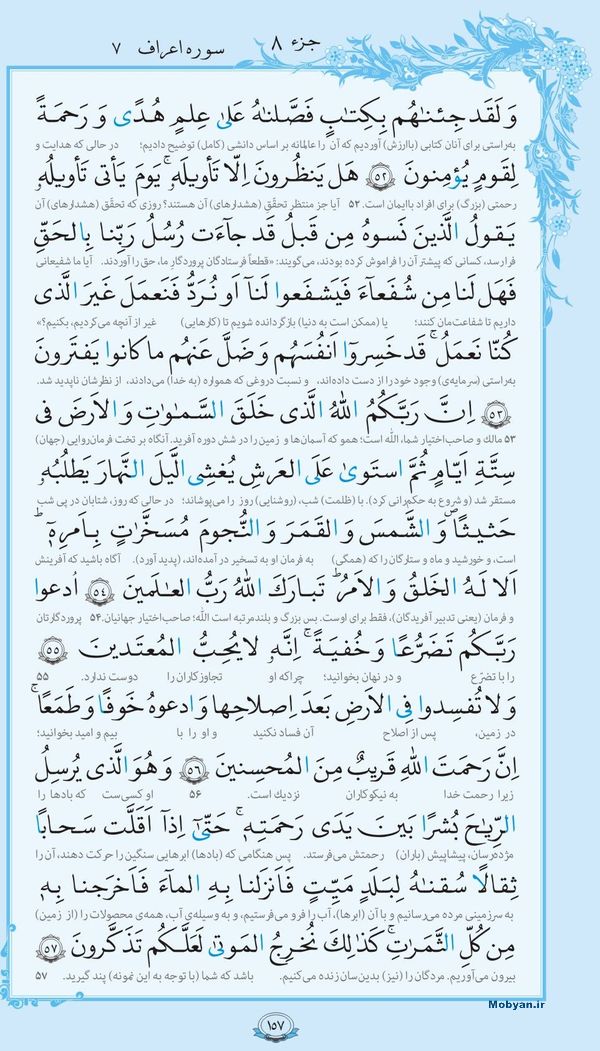 جزء ۸ سوره اعراف ۷
وَ لَقَد جِئنٰهُم بِكِتٰبٍ فَصَّلنٰهُ عَلىٰ عِلمٍ هُدًى وَ رَحمَةً
به‌راستی برای آنان کتابی (باارزش) آوردیم که آن را عالمانه بر اساس دانشی (کامل) توضیح دادیم؛ در حالی که هدایت و
لِقَومٍ يُؤمِنونَ ﴿۵۲﴾ هَل يَنظُرونَ اِلّا تَأويلَهٗ ۚ يَومَ يَأتى تَأويلُهٗ
رحمتی (بزرگ) برای افراد باایمان است. ۵۲ آیا جز منتظر تحقّق (هشدارهای) آن هستند؟ روزی که تحقّق (هشدارهای) آن
يَقولُ الَّذينَ نَسوهُ مِن قَبلُ قَد جآءَت رُسُلُ رَبِّنا بِالحَقِّ
فرارسد، کسانی که پیشتر آن را فراموش کرده بودند، می‌گویند: «قطعاً فرستادگان پروردگار ما، حق را آوردند. آیا ما شفیعانی
فَهَل لَنا مِن شُفَعآءَ فَيَشفَعوا لَنآ اَو نُرَدُّ فَنَعمَلَ غَيرَ الَّذى
داریم تا شفاعت‌مان کنند؛ یا (ممکن است به دنیا) بازگردانده شویم تا (کارهایی) غیر از آنچه می‌کردیم، بکنیم؟»
كُنّا نَعمَلُ ۚ قَد خَسِروٓا اَنفُسَهُم وَ ضَلَّ عَنهُم ما كانوا يَفتَرونَ
به‌راستی (سرمایه‌ی) وجود خود را از دست داده‌اند، و نسبت دروغی که همواره (به خدا) می‌دادند، از نظرشان ناپدید شد.
﴿۵۳﴾ اِنَّ رَبَّكُمُ اللهُ الَّذى خَلَقَ السَّمٰوٰتِ وَ الاَرضَ فى
۵۳ مالک و صاحب‌اختیار شما، الله است؛ همو که آسمان‌ها و زمین را در شش دوره آفرید. آنگاه بر تخت فرمان‌روایی (جهان)
سِتَّةِ اَيّامٍ ثُمَّ استَوىٰ عَلَى العَرشِ يُغشِى الَّيلَ النَّهارَ يَطلُبُهٗ
مستقر شد (و شروع به حکم‌رانی کرد). با (ظلمت) شب، (روشنایی) روز را می‌پوشاند؛ در حالی که روز، شتابان در پی شب
حَثيثًا ۙ وَ الشَّمسَ وَ القَمَرَ وَ النُّجومَ مُسَخَّرٰتٍ بِاَمرِهٖ ۗ
است، و خورشید و ماه و ستارگان را که (همگی) به فرمان او به تسخیر در آمده‌اند، (پدید آورد). آگاه باشید که آفرینش
اَلا لَهُ الخَلقُ وَ الاَمرُ ۗ تَبارَكَ اللهُ رَبُّ العٰلَمينَ ﴿۵۴﴾ اُدعوا
و فرمان (یعنی تدبیر آفریدگان)، فقط برای اوست. بس بزرگ و بلندمرتبه است الله؛ صاحب‌اختیار جهانیان. ۵۴ پروردگارتان
رَبَّكُم تَضَرُّعًا وَ خُفيَةً ۚ اِنَّهٗ لا يُحِبُّ المُعتَدينَ ﴿۵۵﴾
را با تضرّع و در نهان بخوانید؛ چرا که او تجاوزکاران را دوست ندارد. ۵۵
وَ لا تُفسِدوا فِى الاَرضِ بَعدَ اِصلاحِها وَ ادعوهُ خَوفًا وَ طَمَعًا ۚ
در زمین، پس از اصلاح آن فساد نکنید و او را با بیم و امید بخوانید؛
اِنَّ رَحمَتَ اللهِ قَريبٌ مِنَ المُحسِنينَ ﴿۵۶﴾ وَ هُوَ الَّذى يُرسِلُ
زیرا رحمت خدا به نیکوکاران نزدیک است. ۵۶ او کسی‌ست که بادها را
الرِّيٰحَ بُشرًا بَينَ يَدَى رَحمَتِهٖ ۚ حَتّىٰٓ اِذآ اَقَلَّت سَحابًا
مژده‌رسان، پیشاپیش (باران) رحمتش می‌فرستد. پس هنگامی که (بادها) ابرهایی سنگین را حرکت دهند، آن را
ثِقالًا سُقنٰهُ لِبَلَدٍ مَيِّتٍ فَاَنزَلنا بِهِ المآءَ فَاَخرَجنا بِهٖ
به سرزمینی مرده می‌رسانیم و با آن (ابرها)، آب را فرو می‌فرستیم، و به وسیله‌ی آب، همه‌ی محصولات را (از زمین)
مِن كُلِّ الثَّمَرٰتِ ۚ كَذٰلِكَ نُخرِجُ المَوتىٰ لَعَلَّكُم تَذَكَّرونَ ﴿۵۷﴾
بیرون می‌آوریم. مردگان را (نیز) بدین‌سان زنده می‌کنیم. باشد که شما (با توجه به این نمونه) پند گیرید. ۵۷
۱۵۷
Mobyan.ir